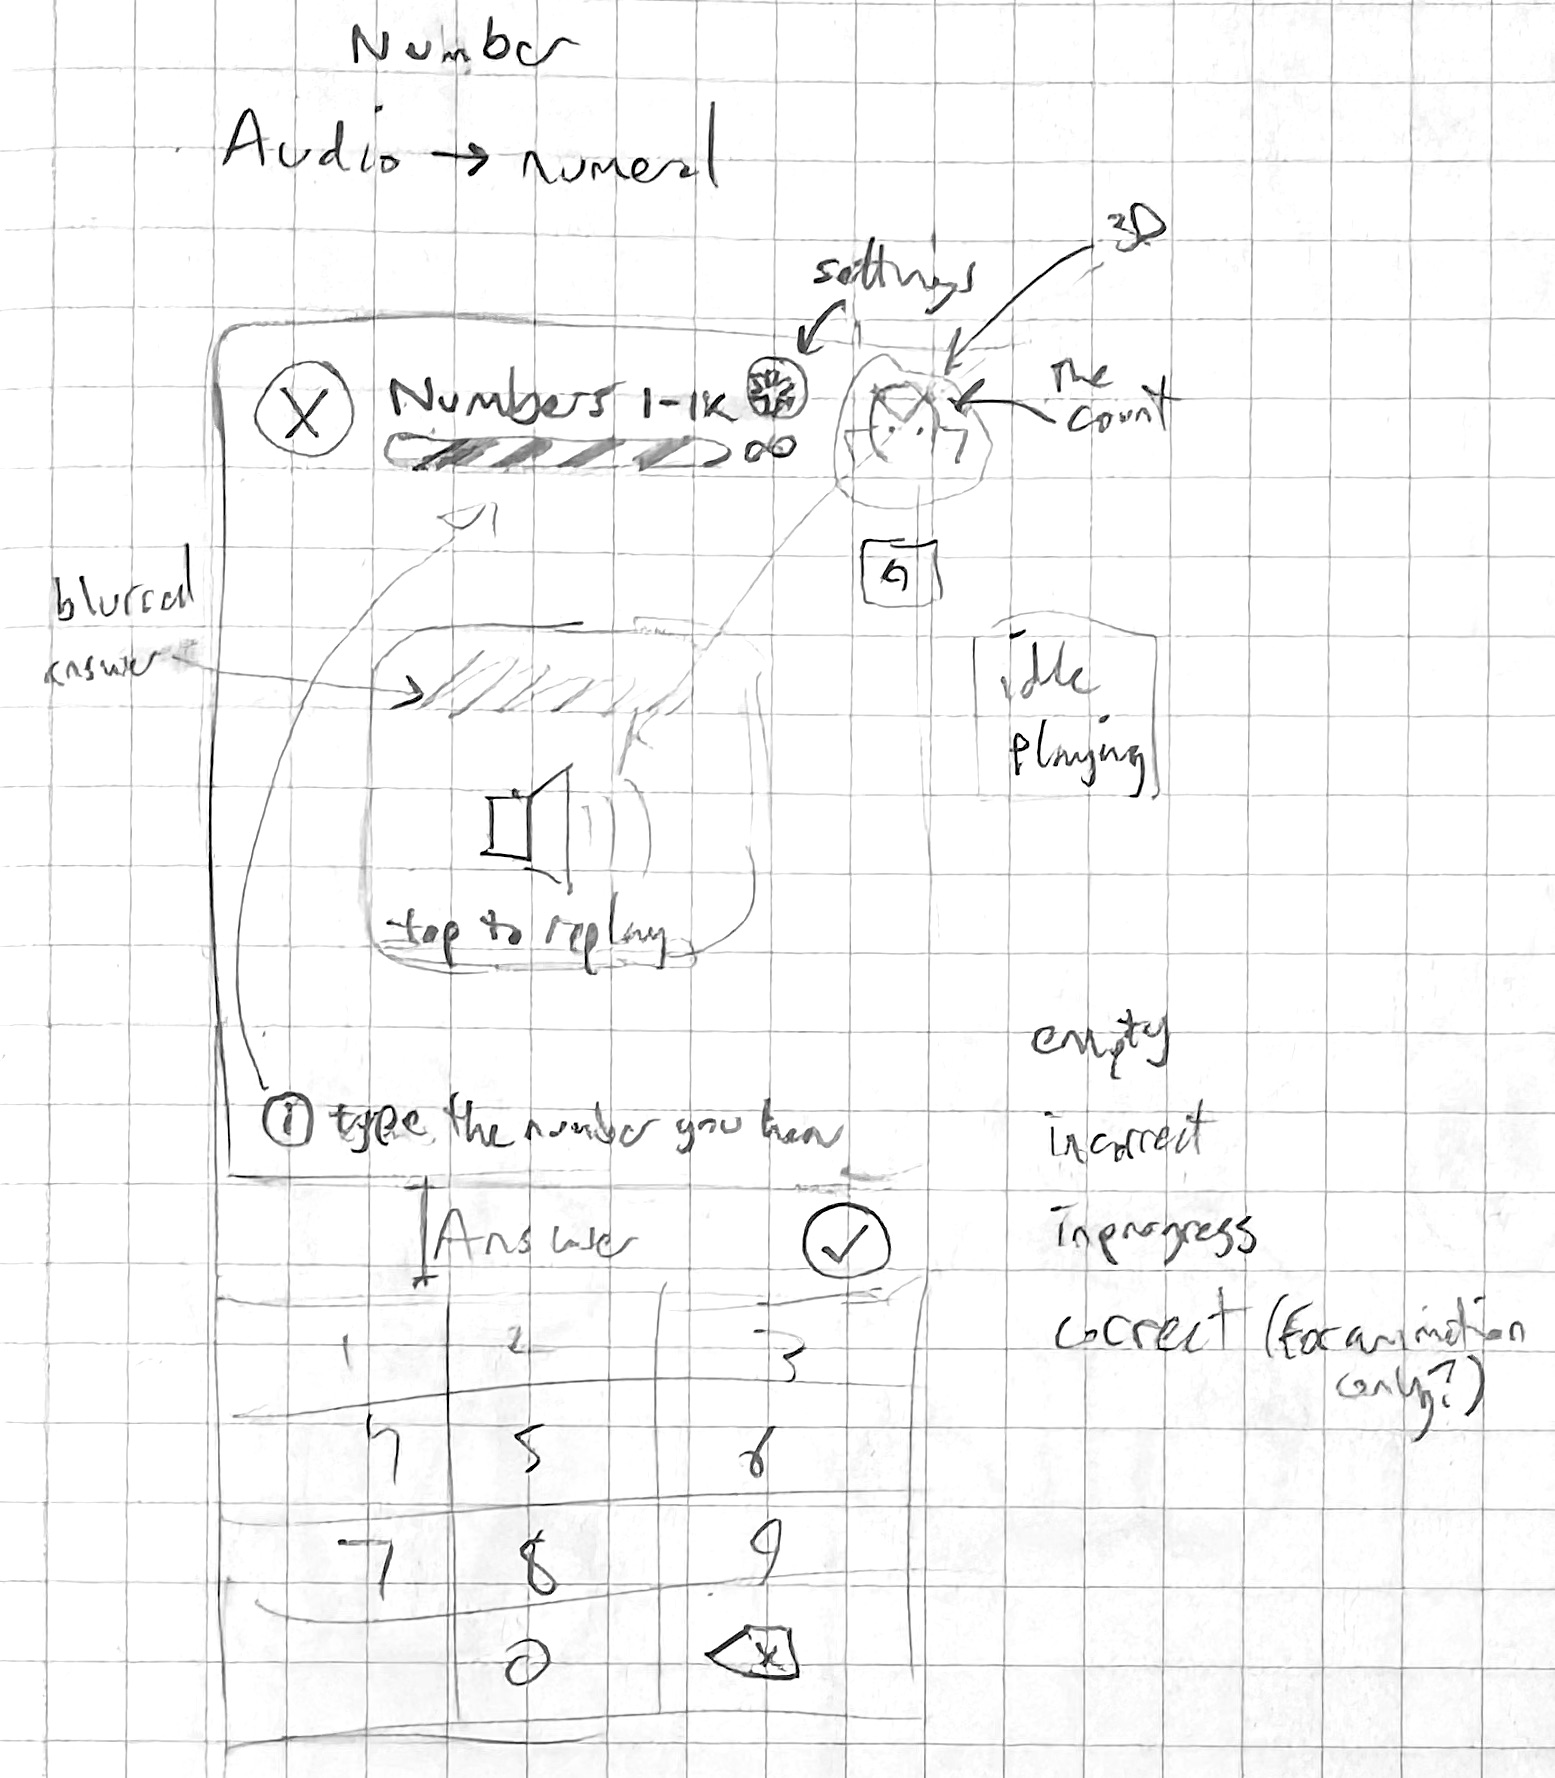 Number
Audio → numeral
3D
settings
The
count
X Numbers 1-1K
∞
blurred
answer
idle
playing
tap to replay
empty
i type the number you hear
incorrect
Answer ✓
in progress
1 2 3
correct (for animation
only?)
4 5 6
7 8 9
0 x